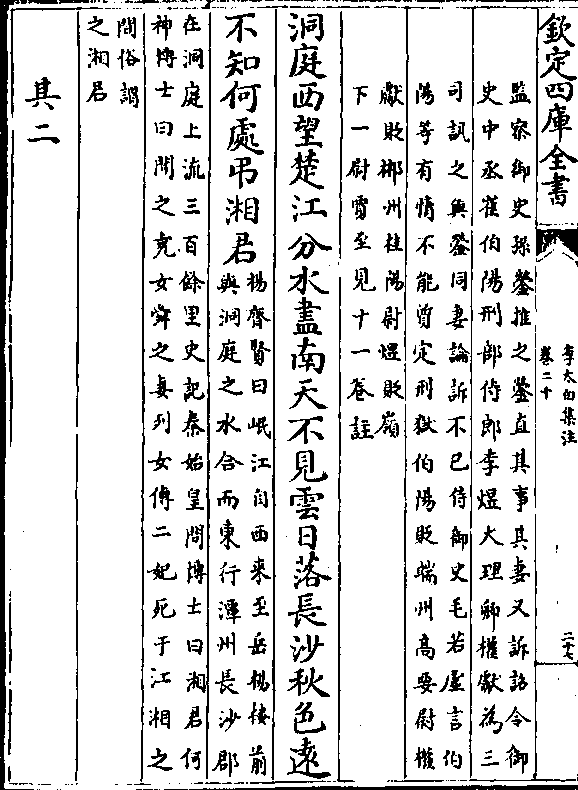 欽定四庫全書
李太白集注
卷二十
二十七
監察御史孫鎣推之鎣直其事其妻又訴詔令御
史中丞崔伯陽刑部侍郎李煜大理卿權獻為三
司訊之與鎣同妻論訴不已侍御史毛若虛言伯
陽等有情不能質定刑獄伯陽貶端州高要尉權
獻貶郴州桂陽尉煜貶嶺
下一尉鎣至見十一卷註
洞庭西望楚江分水盡南天不見雲日落長沙秋色遠
不知何處弔湘君
楊齊賢曰岷江自西來至岳楊樓前
與洞庭之水合而東行潭州長沙郡
在洞庭上流三百餘里史記秦始皇問博士曰湘君何
神博士曰聞之堯女舜之妻列女傳二妃死于江湘之
間俗謂
之湘君
其二